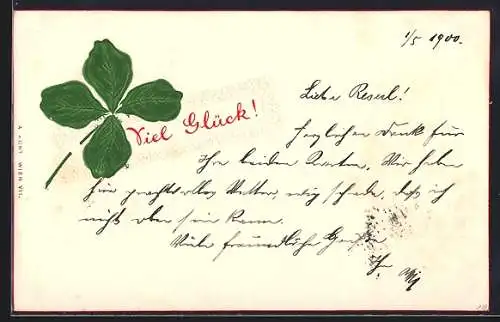 1/5 1900.
Liebe Reserl!
Viel Glück!
Herzlichen Dank für
Ihre beiden Karten. Wir haben
hier prachtvolles Wetter, ewig schade, daß ich
nicht oben sein kann.
Viele freundliche Grüße
Ihr
A. WIEN VII.